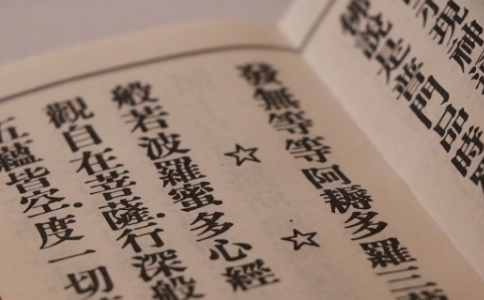 示現神通
佛說是普門品時
發無等等阿耨多羅三
☆ ☆
般若波羅蜜多心經
觀自在菩薩.行深般
五蘊皆空.度一切